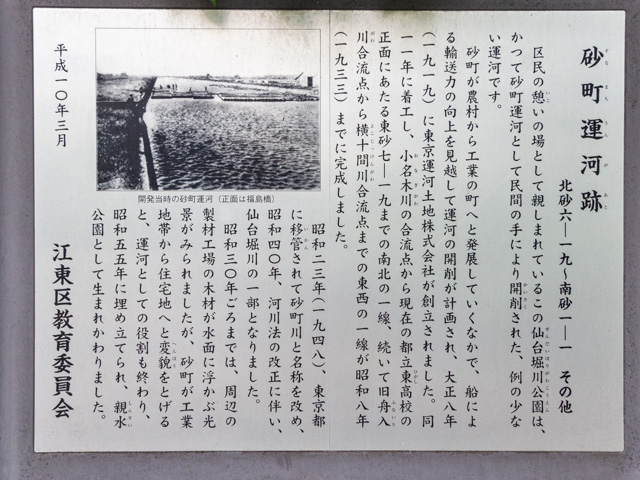 砂町運河跡
北砂六―一九～南砂一―一　その他
区民の憩いの場として親しまれているこの仙台堀川公園は、
かつて砂町運河として民間の手により開削された、例の少な
い運河です。
砂町が農村から工業の町へと発展していくなかで、船によ
る輸送力の向上を見越して運河の開削が計画され、大正八年
（一九一九）に東京運河土地株式会社が創立されました。同
一一年に着工し、小名木川の合流点から現在の都立東高校の
正面にあたる東砂七―一九までの南北の一線、続いて旧舟入
川合流点から横十間川合流点までの東西の一線が昭和八年
（一九三三）までに完成しました。
開発当時の砂町運河（正面は福島橋）
昭和二三年（一九四八）、東京都
に移管されて砂町川と名称を改め、
昭和四〇年、河川法の改正に伴い、
仙台堀川の一部となりました。
昭和三〇年ごろまでは、周辺の
製材工場の木材が水面に浮かぶ光
景がみられましたが、砂町が工業
地帯から住宅地へと変貌をとげる
と、運河としての役割も終わり、
昭和五五年に埋め立てられ、親水
公園として生まれかわりました。
平成一〇年三月
江東区教育委員会